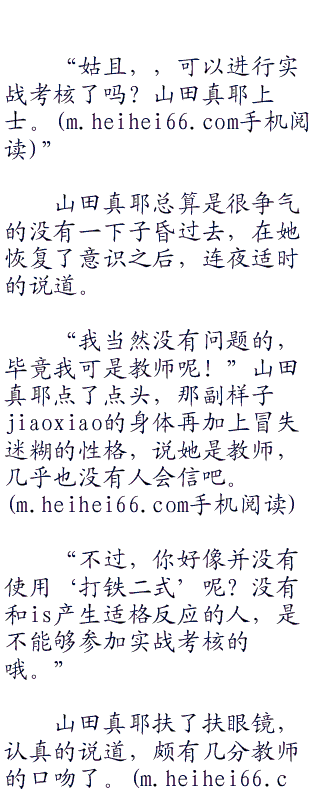 “姑且，，可以进行实
战考核了吗？山田真耶上
士。(m.heihei66.com手机阅
读)”
山田真耶总算是很争气
的没有一下子昏过去，在她
恢复了意识之后，连夜适时
的说道。
“我当然没有问题的，
毕竟我可是教师呢！”山田
真耶点了点头，那副样子
jiaoxiao的身体再加上冒失
迷糊的性格，说她是教师，
几乎也没有人会信吧。
(m.heihei66.com手机阅读)
“不过，你好像并没有
使用‘打铁二式’呢？没有
和is产生适格反应的人，是
不能够参加实战考核的
哦。”
山田真耶扶了扶眼镜，
认真的说道，颇有几分教师
的口吻了。(m.heihei66.c